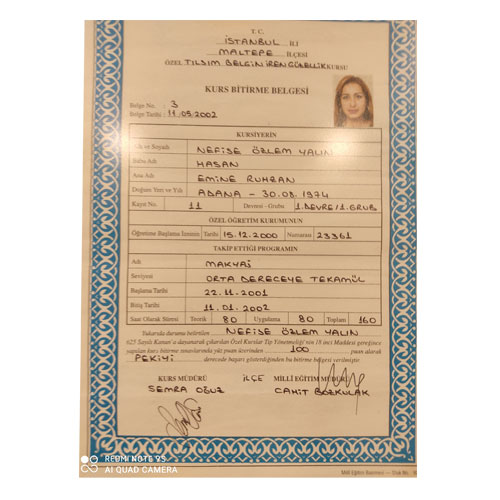 T. C.
İSTANBUL İLİ
MALTEPE İLÇESİ
ÖZEL TILSIM BELGİN İREN GÜZELLİK KURSU
KURS BİTİRME BELGESİ
Belge No. : 3
Belge Tarihi : 11.05.2002
KURSİYERİN
Adı ve Soyadı NEFİSE ÖZLEM YALIN
Baba Adı HASAN
Ana Adı EMİNE RUHRAN
Doğum Yeri ve Yılı ADANA - 30.08.1974
Kayıt No. 11 Devresi - Grubu 1.DEVRE/1.GRUB
ÖZEL ÖĞRETİM KURUMUNUN
Öğretime Başlama İzninin Tarihi 15.12.2000 Numarası 23361
TAKİP ETTİĞİ PROGRAMIN
Adı MAKYAJ
Seviyesi ORTA DERECEYE TEKAMÜL
Başlama Tarihi 22.11.2001
Bitiş Tarihi 11.01.2002
Saat Olarak Süresi Teorik 80 Uygulama 80 Toplam 160
Yukarıda durumu belirtilen NEFİSE ÖZLEM YALIN
625 Sayılı Kanun'a dayanarak çıkarılan Özel Kurslar Tip Yönetmeliği'nin 18 inci Maddesi gereğince
yapılan kurs bitirme sınavlarında yüz puan üzerinden 100 puan alarak
PEKİYİ derecede başarı gösterdiğinden bu bitirme belgesi verilmiştir.
KURS MÜDÜRÜ İLÇE MİLLİ EĞİTİM MÜDÜRÜ
SEMRA OĞUZ CAHİT BOZKULAK
REDMI NOTE 9S
AI QUAD CAMERA
Milli Eğitim Basımevi — Stok No.